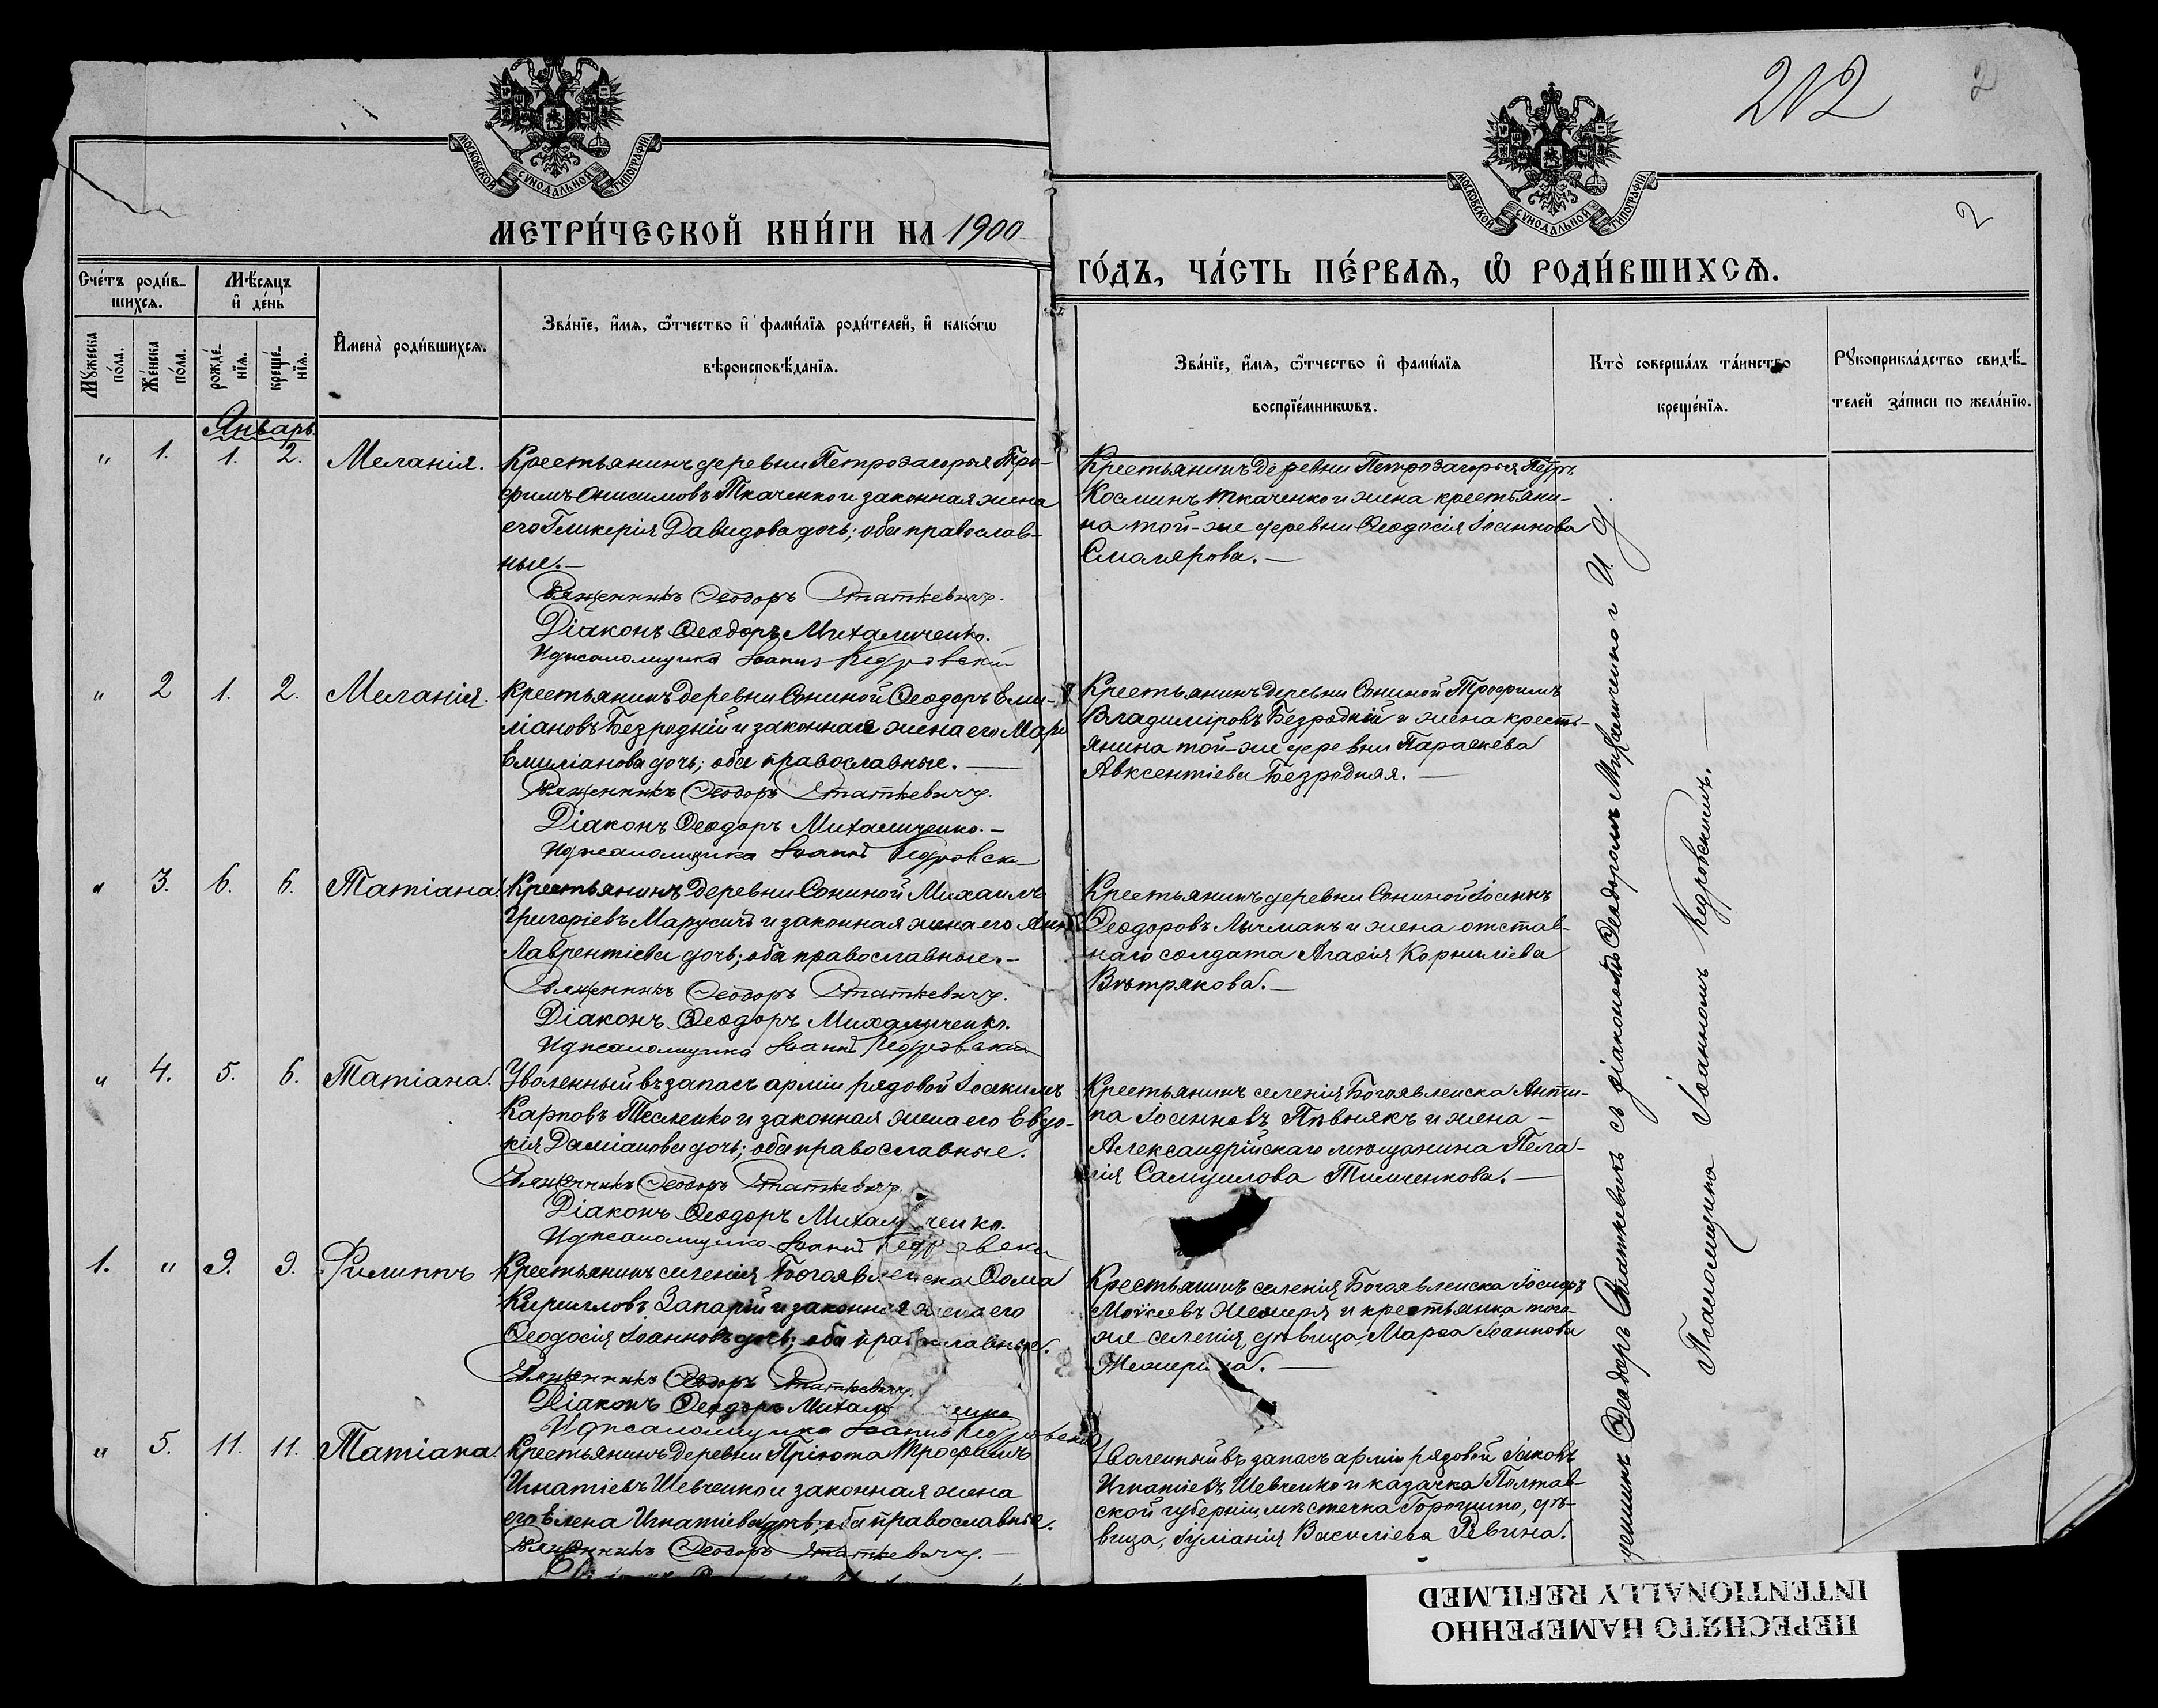 212
2
2
МОСКОВСКОЙ СУНОДАЛЬНОЙ ТИПОГРАФІИ
МОСКОВСКОЙ СУНОДАЛЬНОЙ ТИПОГРАФІИ
МЕТРИ́ЧЕСКОЙ КНИ́ГИ НА 1900
ГО́ДЪ, ЧА́СТЬ ПЕ́РВАѦ, Ѡ РОДИ́ВШИХСѦ.
Сче́тъ роди́в-
шихсѧ.
Мѣ́сѧцъ
и҆ де́нь
Мꙋ́жеска
по́ла.
Же́нска
по́ла.
рожде́-
нїѧ.
креще́-
нїѧ.
И҆мена̀ роди́вшихсѧ.
Зва́нїе, и҆́мѧ, ѻ҆́тчество и҆ фамі́лїѧ роди́телей, и҆ како́гѡ
вѣроисповѣ́данїѧ.
Зва́нїе, и҆́мѧ, ѻ҆́тчество и҆ фамі́лїѧ
воспрїе́мникѡвъ.
Кто̀ соверша́лъ та́инство
креще́нїѧ.
Рꙋкоприкла́дство свидѣ́-
телей за́писи по жела́нїю.
Январь.
" 1. 1. 2. Меланія.
Крестьянинъ деревни Петрозагорья Тро-
фимъ Онисимовъ Ткаченко и законная жена
его Гликерія Давидова дочь; оба православ-
ные.—
Священникъ Ѳеодоръ Статкевичъ.
Діаконъ Ѳеодоръ Михаличенко.
И д псаломщика Іоаннъ Кедровскій
Крестьянинъ деревни Петрозагорья Петръ
Косминъ Ткаченко и жена крестьяни-
на той-же деревни Ѳеодосія Іоаннова
Смолярова.—
" 2 1. 2. Меланія.
Крестьянинъ деревни Сониной Ѳеодоръ Еми-
ліановъ Безродній и законная жена его Марі
Емиліанова дочь; оба православные.—
Священникъ Ѳеодоръ Статкевичъ.
Діаконъ Ѳеодоръ Михаличенко.—
И д псаломщика Іоаннъ Кедровскі
Крестьянинъ деревни Сониной Трофимъ
Владиміровъ Безродній и жена кресть-
янина той-же деревни Параскева
Авксентіева Безродная.—
" 3. 6. 6. Татіана.
Крестьянинъ деревни Сониной Михаилъ
Григоріевъ Марусичъ и законная жена его Анна
Лаврентіева дочь; оба православные.—
Священникъ Ѳеодоръ Статкевичъ.
Діаконъ Ѳеодоръ Михаличенко.
И д псаломщика Іоаннъ Кедровскій
Крестьянинъ деревни Сониной Іоаннъ
Ѳеодоровъ Лычманъ и жена отстав-
наго солдата Агафія Корниліева
Вѣтрякова.—
" 4. 5. 6. Татіана.
Уволенный въ запасъ арміи рядовой Іоакимъ
Карповъ Тесленко и законная жена его Евдо-
кія Даміанова дочь; оба православные.
Священникъ Ѳеодоръ Статкевичъ.
Діаконъ Ѳеодоръ Михаличенко.
И д псаломщика Іоаннъ Кедровскі
Крестьянинъ селенія Богоявленска Анти-
па Іоанновъ Пивнякъ и жена —
Александрійскаго мѣщанина Пела-
гія Самуилова Тимченкова.—
1. " 9. 9. Филиппъ
Крестьянинъ селенія Богоявленска Ѳома
Кирилловъ Запарій и законная жена его
Ѳеодосія Іоаннова дочь; оба православные.
Священникъ Ѳеодоръ Статкевичъ.
Діаконъ Ѳеодоръ Михаличенко
И д псаломщика Іоаннъ Кедровскі
Крестьянинъ селенія Богоявленска Іосифъ
Моисеевъ Жемеря и крестьянка того-
же селенія, дѣвица, Марфа Іоаннова
Жемерина.—
" 5. 11. 11. Татіана.
Крестьянинъ деревни Пріюта Трофимъ
Игнатіевъ Шевченко и законная жена
его Елена Игнатіева дочь; оба православные.
Священникъ Ѳеодоръ Статкевичъ.—
Уволенный въ запасъ арміи рядовой Іаковъ
Игнатіевъ Шевченко и казачка Полтав-
ской губерніи, мѣстечка Горошино, дѣ-
вица, Іуліанія Василіева Ревина.
щенникъ Ѳеодоръ Статкевичъ съ діакономъ Ѳеодоромъ Михаличенко и И. д.
Псаломщика Іоанномъ Кедровскимъ.—
ПЕРЕСНЯТО НАМЕРЕННО
INTENTIONALLY REFILMED